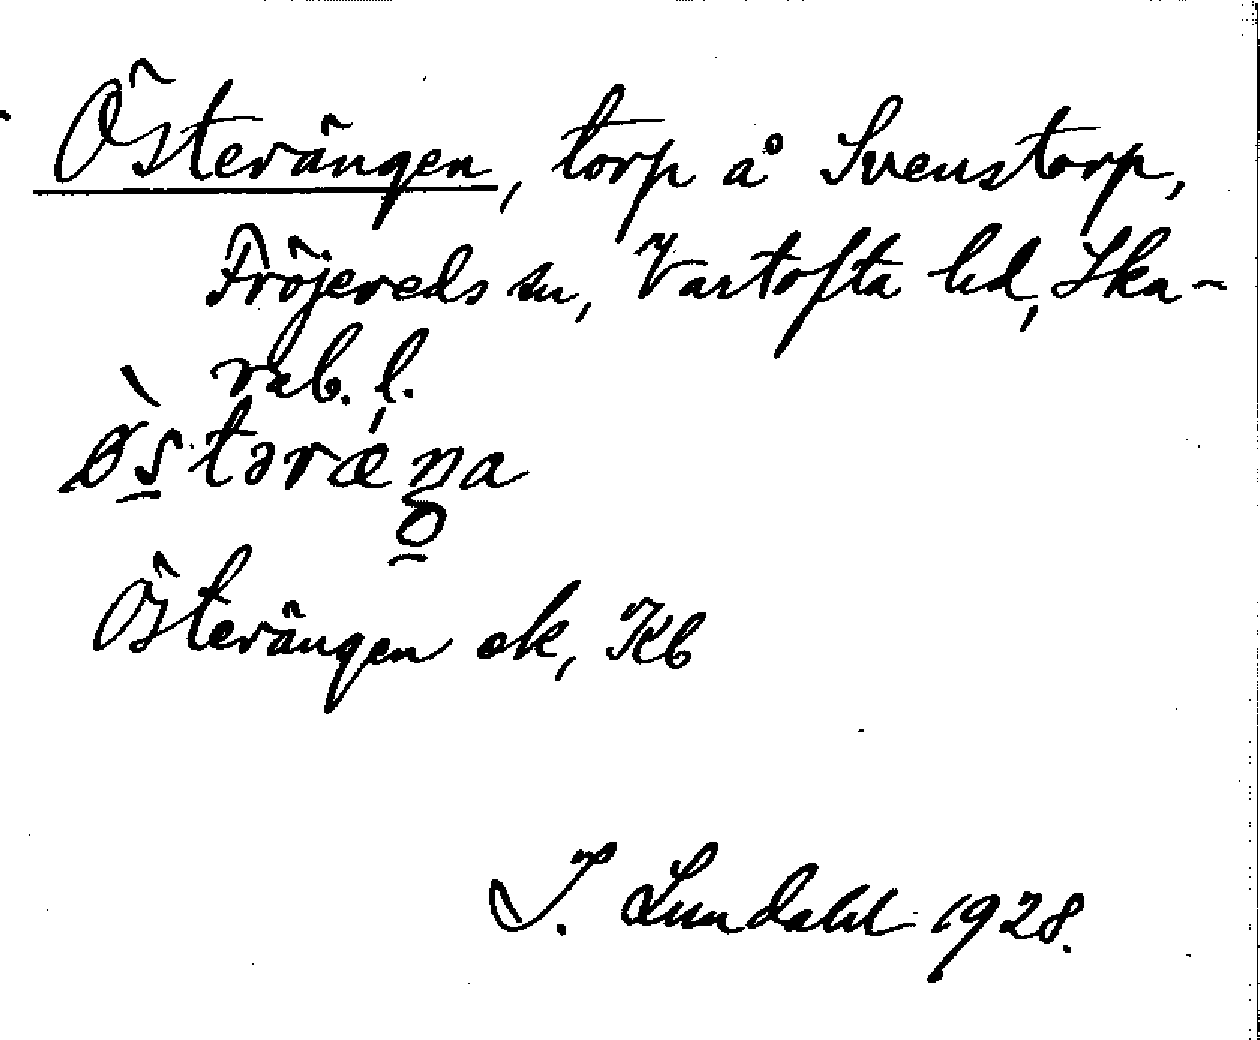 Österängen, torp å Svenstorp,
Fröjereds sn, Vartofta hd, Ska-
rab. l.
Österängen ek, Kb
I. Lundahl 1928.